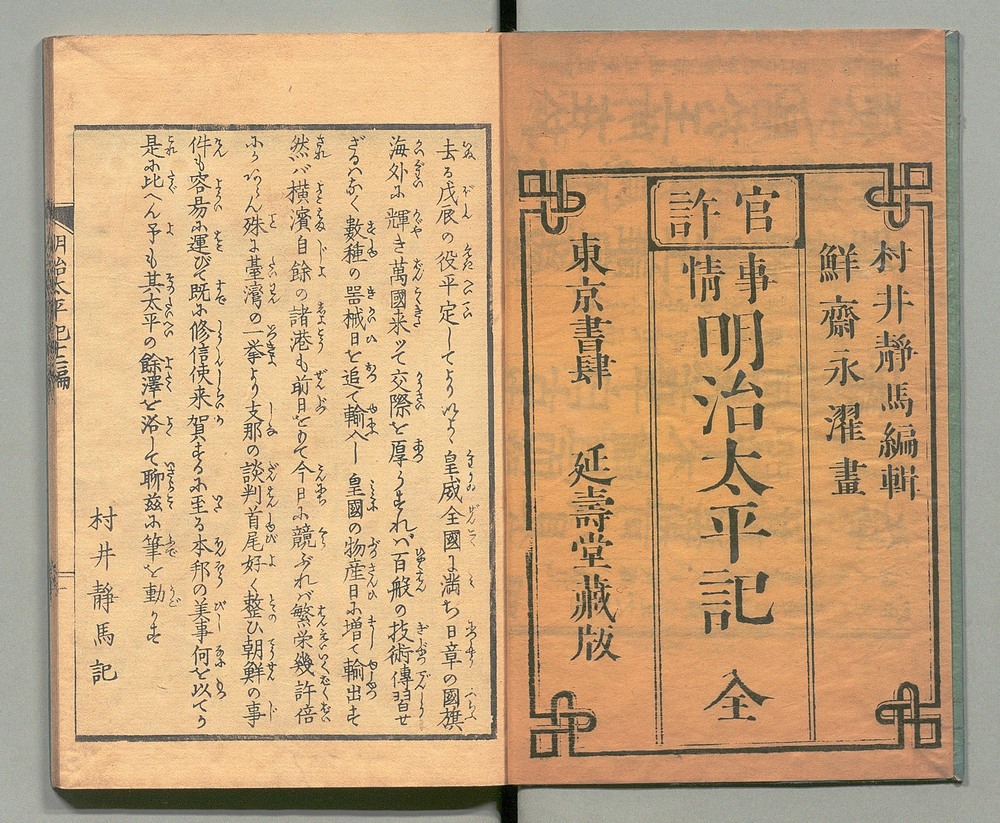 村井靜馬編輯
鮮齋永濯畫
官許
事情
明治太平記 全
東京書肆 延壽堂藏版
去る戊辰の役平定してよりいよ〳〵皇威全國に満ち日章の國旗
海外に輝き萬國来ッて交際を厚うすれバ百般の技術傳習せ
ざるハなく數種の器械日を追て輸入し 皇國の物産日に増て輸出す
然バ横濱自餘の諸港も前日をもて今日に競ぶれバ繁栄幾許倍
にかあらん殊に臺灣の一挙より支那の談判首尾好く整ひ朝鮮の事
件も容易に運びて既に修信使来賀するに至る本邦の美事何を以てか
是に比へん予も其太平の餘澤を浴して聊茲に筆を動かす
村井靜馬記
明治太平記十二編